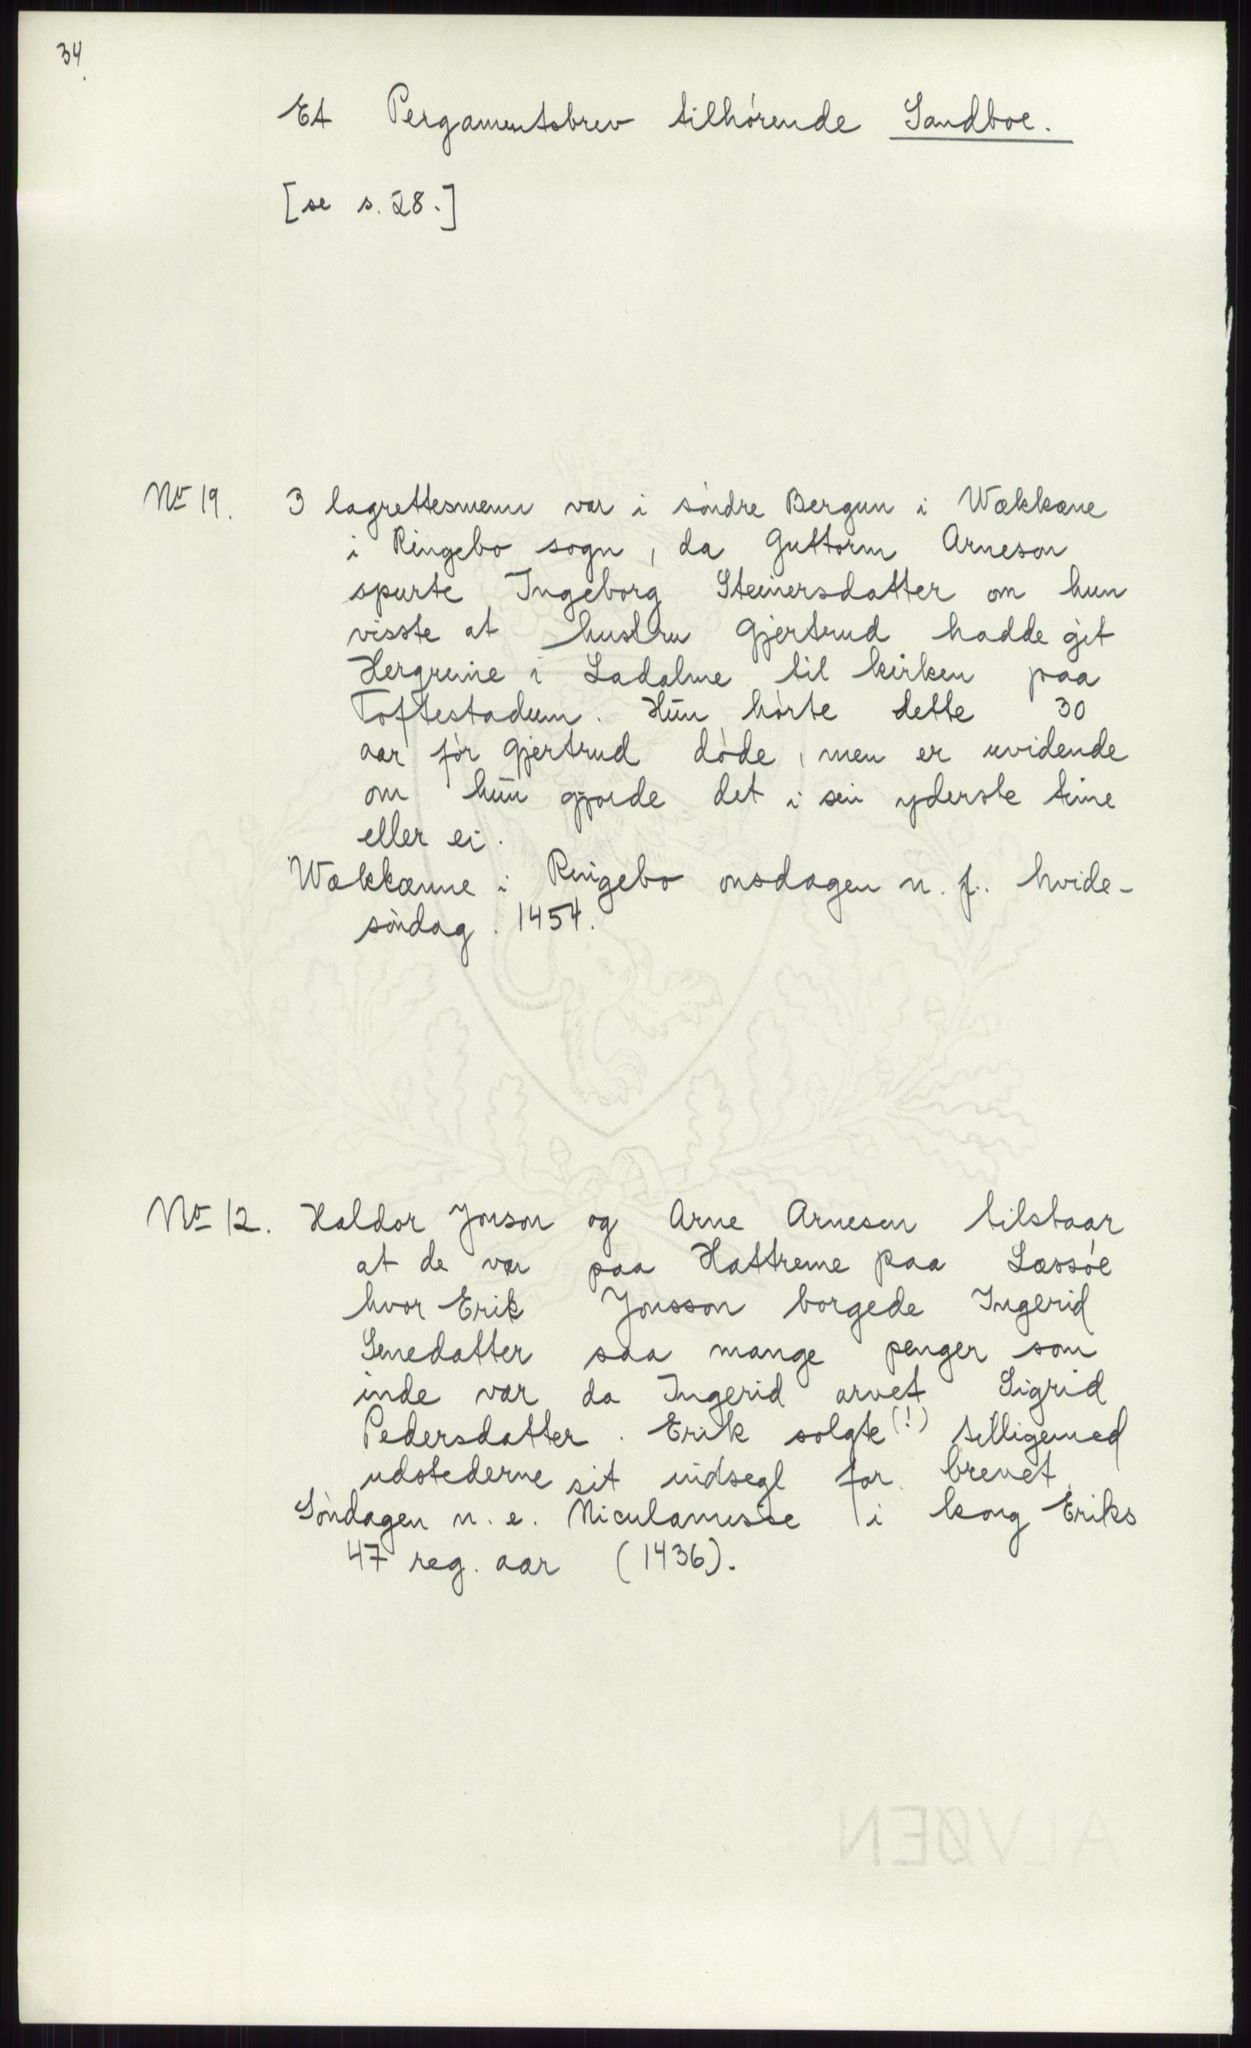 34.
Et Pergamentsbrev tilhørende Sandboe.
[se s. 28.]
No 19. 3 lagrettesmenn var i søndre Bergum i Wækkæne
i Ringebo sogn, da Guttorm Arneson
spurte Ingeborg Steinersdatter om hun
visste at hustru Gjertrud hadde git
Hergreine i Ladalme til kirken paa
Toftestadum. Hun hørte dette 30
aar før Gjertrud døde, men er uvidende
om hun gjorde det i sin yderste time
eller ei.
Wækkænne i Ringebo onsdagen n. f. hvide-
søndag. 1454.
No 12. Haldor Jonson og Arne Arnesen tilstaar
at de var paa Hattreme paa Læssøe
hvor Erik Jonsson borgede Ingerid
Senedatter saa mange penger som
inde var da Ingerid arvet Sigrid
Pedersdatter. Erik solgte (!) tilligemed
udstederne sit indsegl for brevet.
Søndagen n. e. Niculamesse i kong Eriks
47 reg. aar (1436).
ALVØEN